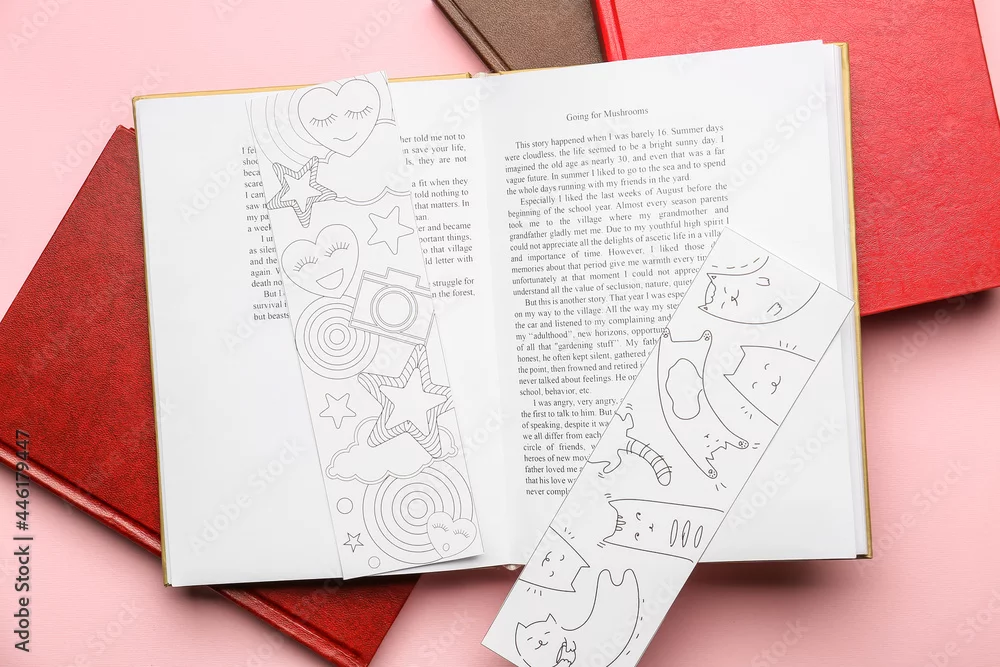 I fe
sho
scare
I cam
saw n
my pa
a week
I ur
as silen
and the
again. W
death no
But I
survival i
but beasts
her told me not to
n save your life,
ls, they are not
a fit when they
told nothing to
that matters. In
an.
er and became
portant things,
to that village
ld letter with
struggle for
n the forest,
Going for Mushrooms
This story happened when I was barely 16. Summer days
were cloudless, the life seemed to be a bright sunny day. I
imagined the old age as nearly 30, and even that was a far
vague future. In summer I liked to go to the sea and to spend
the whole days running with my friends in the yard.
Especially I liked the last weeks of August before the
beginning of the school year. Almost every season parents
took me to the village where my grandmother and
grandfather gladly met me. Due to my youthful high spirit I
could not appreciate all the delights of ascetic life in a villag
and importance of time. However, I liked those d
memories about that period give me warmth every tim
unfortunately at that moment I could not apprec
understand all the value of seclusion, nature, quie
But this is another story. That year I was espe
on my way to the village. All the way my ste
the car and listened to my complaining and
my "adulthood", new horizons, opportun
of all that "gardening stuff". My fath
honest, he often kept silent, gathered
the point, then frowned and retired i
never talked about feelings. He on
school, behavior, etc.
I was angry, very angry,
the first to talk to him. But
of speaking, despite it wa
we all differ from each
circle of friends, w
heroes of new mov
father loved me a
that his love w
never comple
Adobe Stock | #446179447